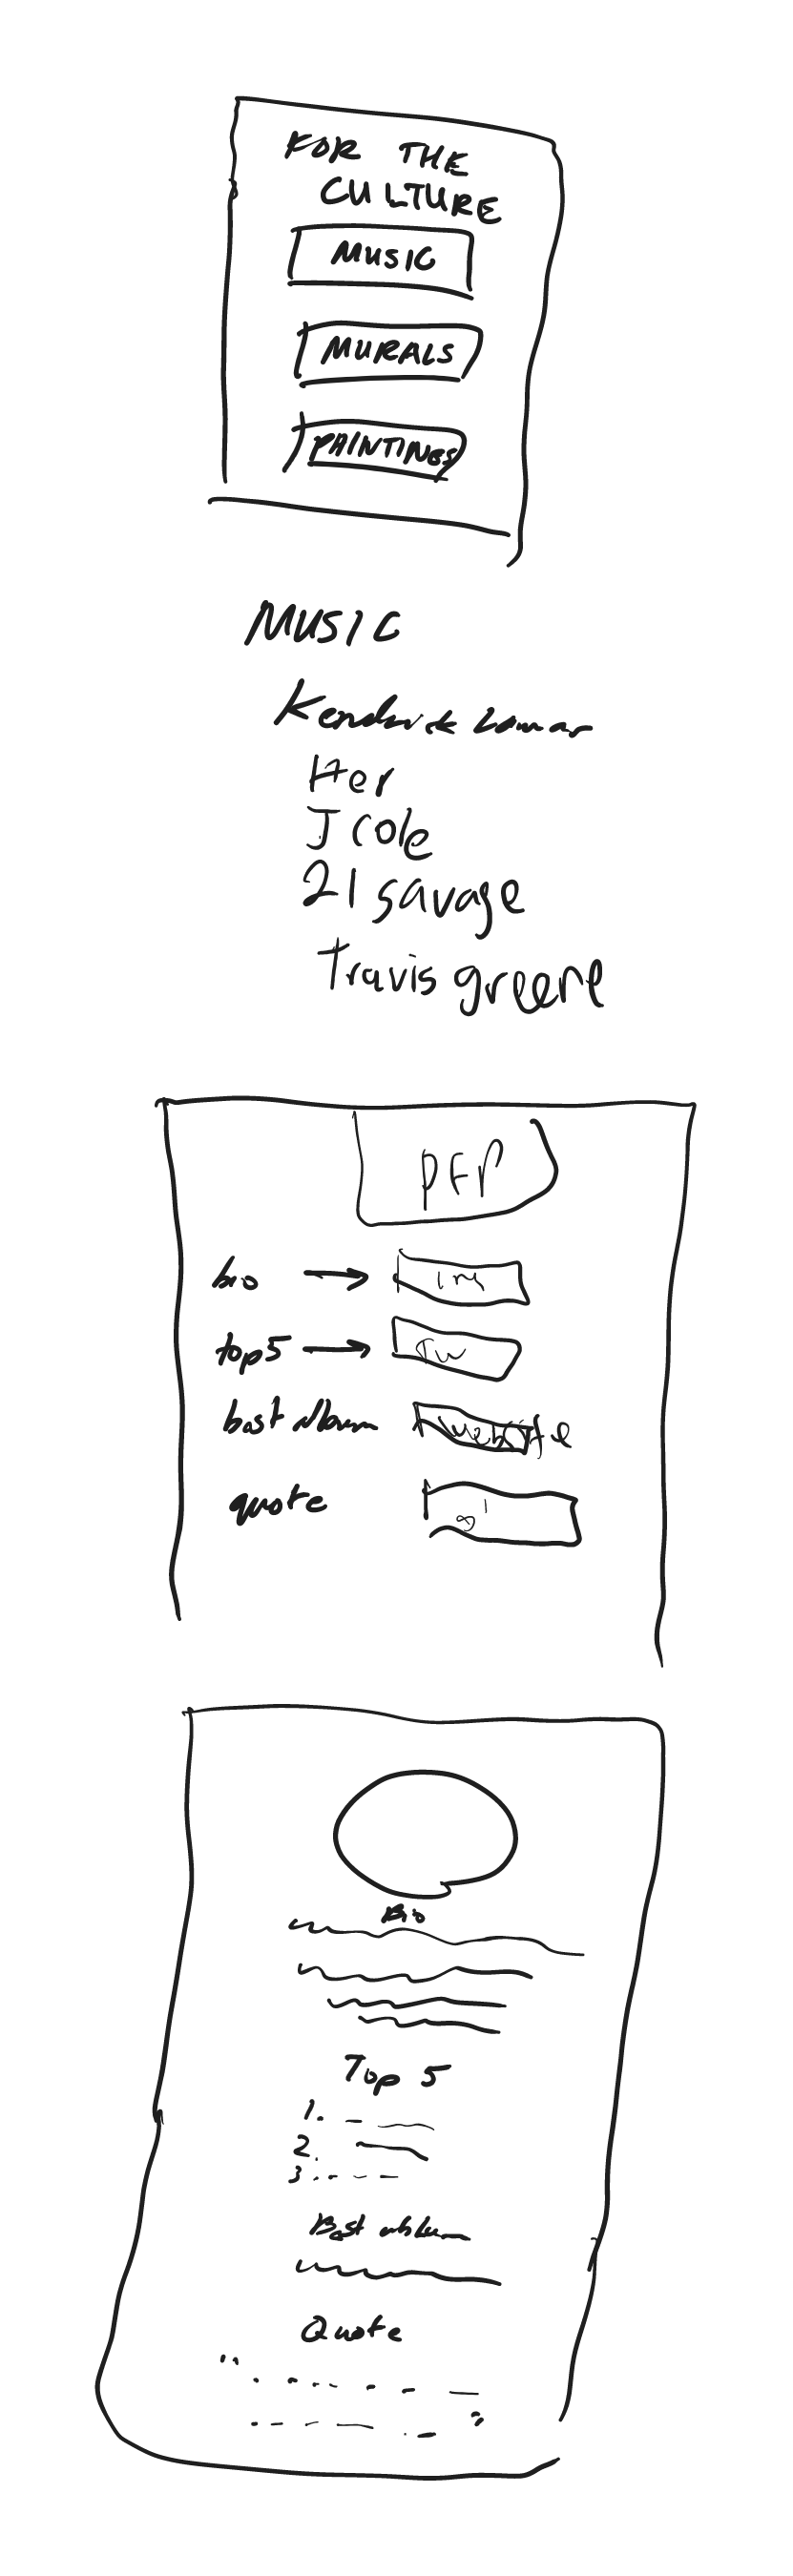 FOR THE
CULTURE
MUSIC
MURALS
PAINTINGS
MUSIC
Kendrick Lamar
Her
J cole
21 savage
Travis greene
PFP
bio
top5
best album
quote
Bio
Top 5
1.
2.
3.
Best album
Quote
"
"